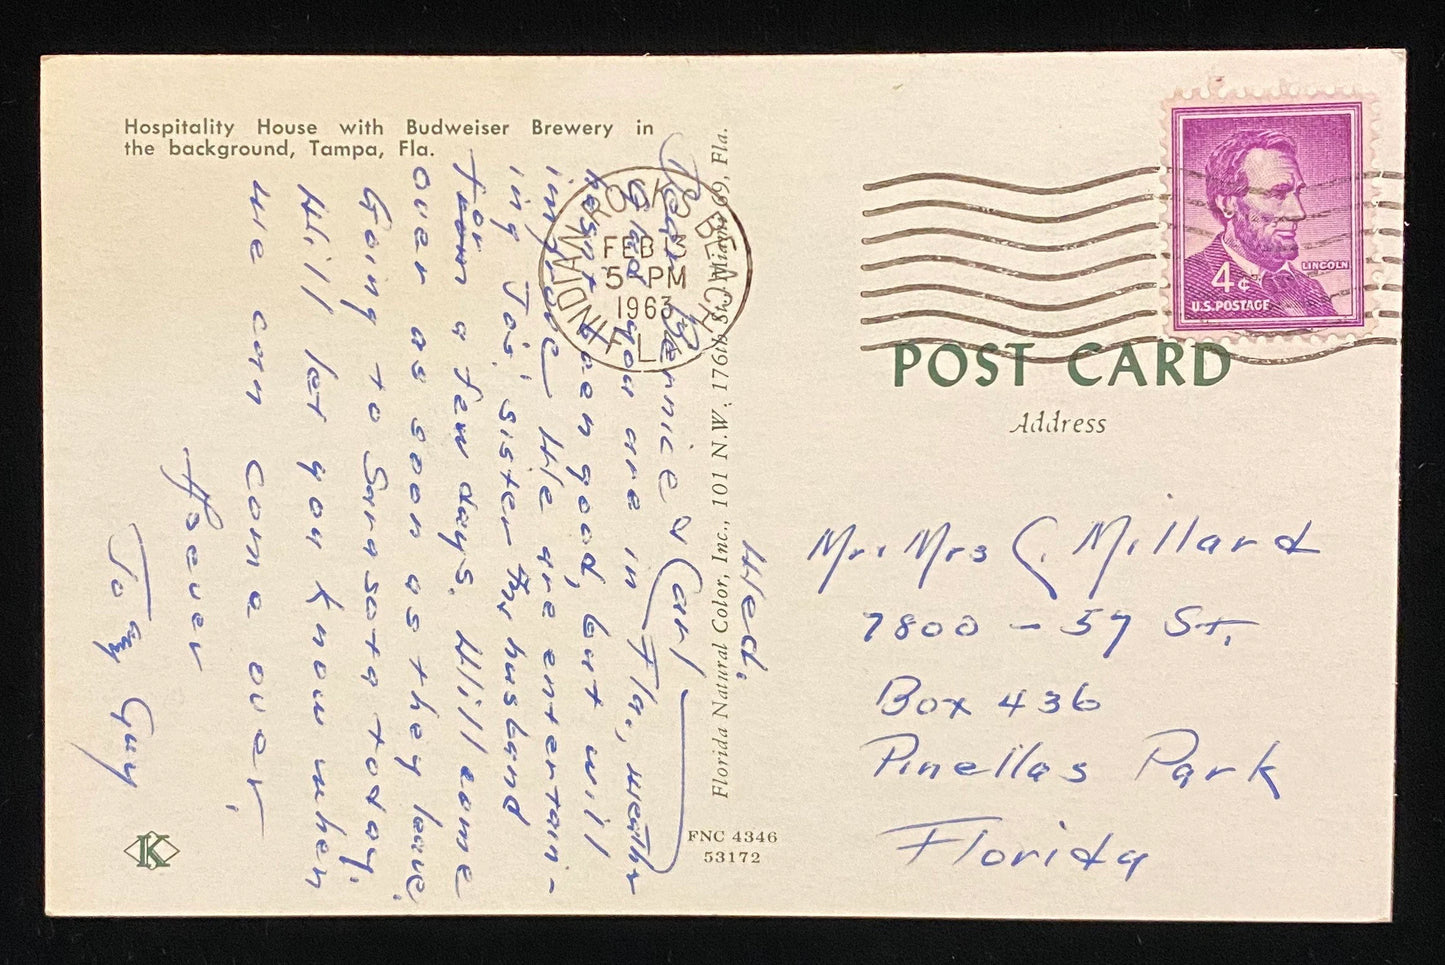 Hospitality House with Budweiser Brewery in
the background, Tampa, Fla.
Wed.
Dear Bernice & Carl
Glad you are in Fla., weather
hasn't been good, but will
improve. We are entertain-
ing Jo's sister & her husband
for a few days. Will come
over as soon as they leave.
Going to Sarasota today.
Will let you know when
we can come over.
As ever
Jo & Guy
INDIAN ROCKS BEACH
FEB 13
5 PM
1963
FLA
Florida Natural Color, Inc., 101 N.W. 176th St., Miami 69, Fla.
FNC 4346
53172
K
LINCOLN
4¢
U.S. POSTAGE
POST CARD
Address
Mr. Mrs C. Millard
7800 - 57 St.
Box 436
Pinellas Park
Florida